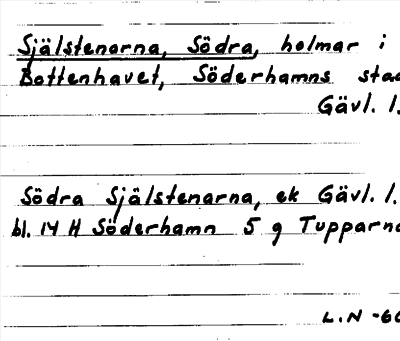 Själstenarna, Södra, holmar i
Bottenhavet, Söderhamns
Gävl. l.
Södra Själstenarna, ek Gävl. l.
bl. 14 H Söderhamn 5 g
L.N